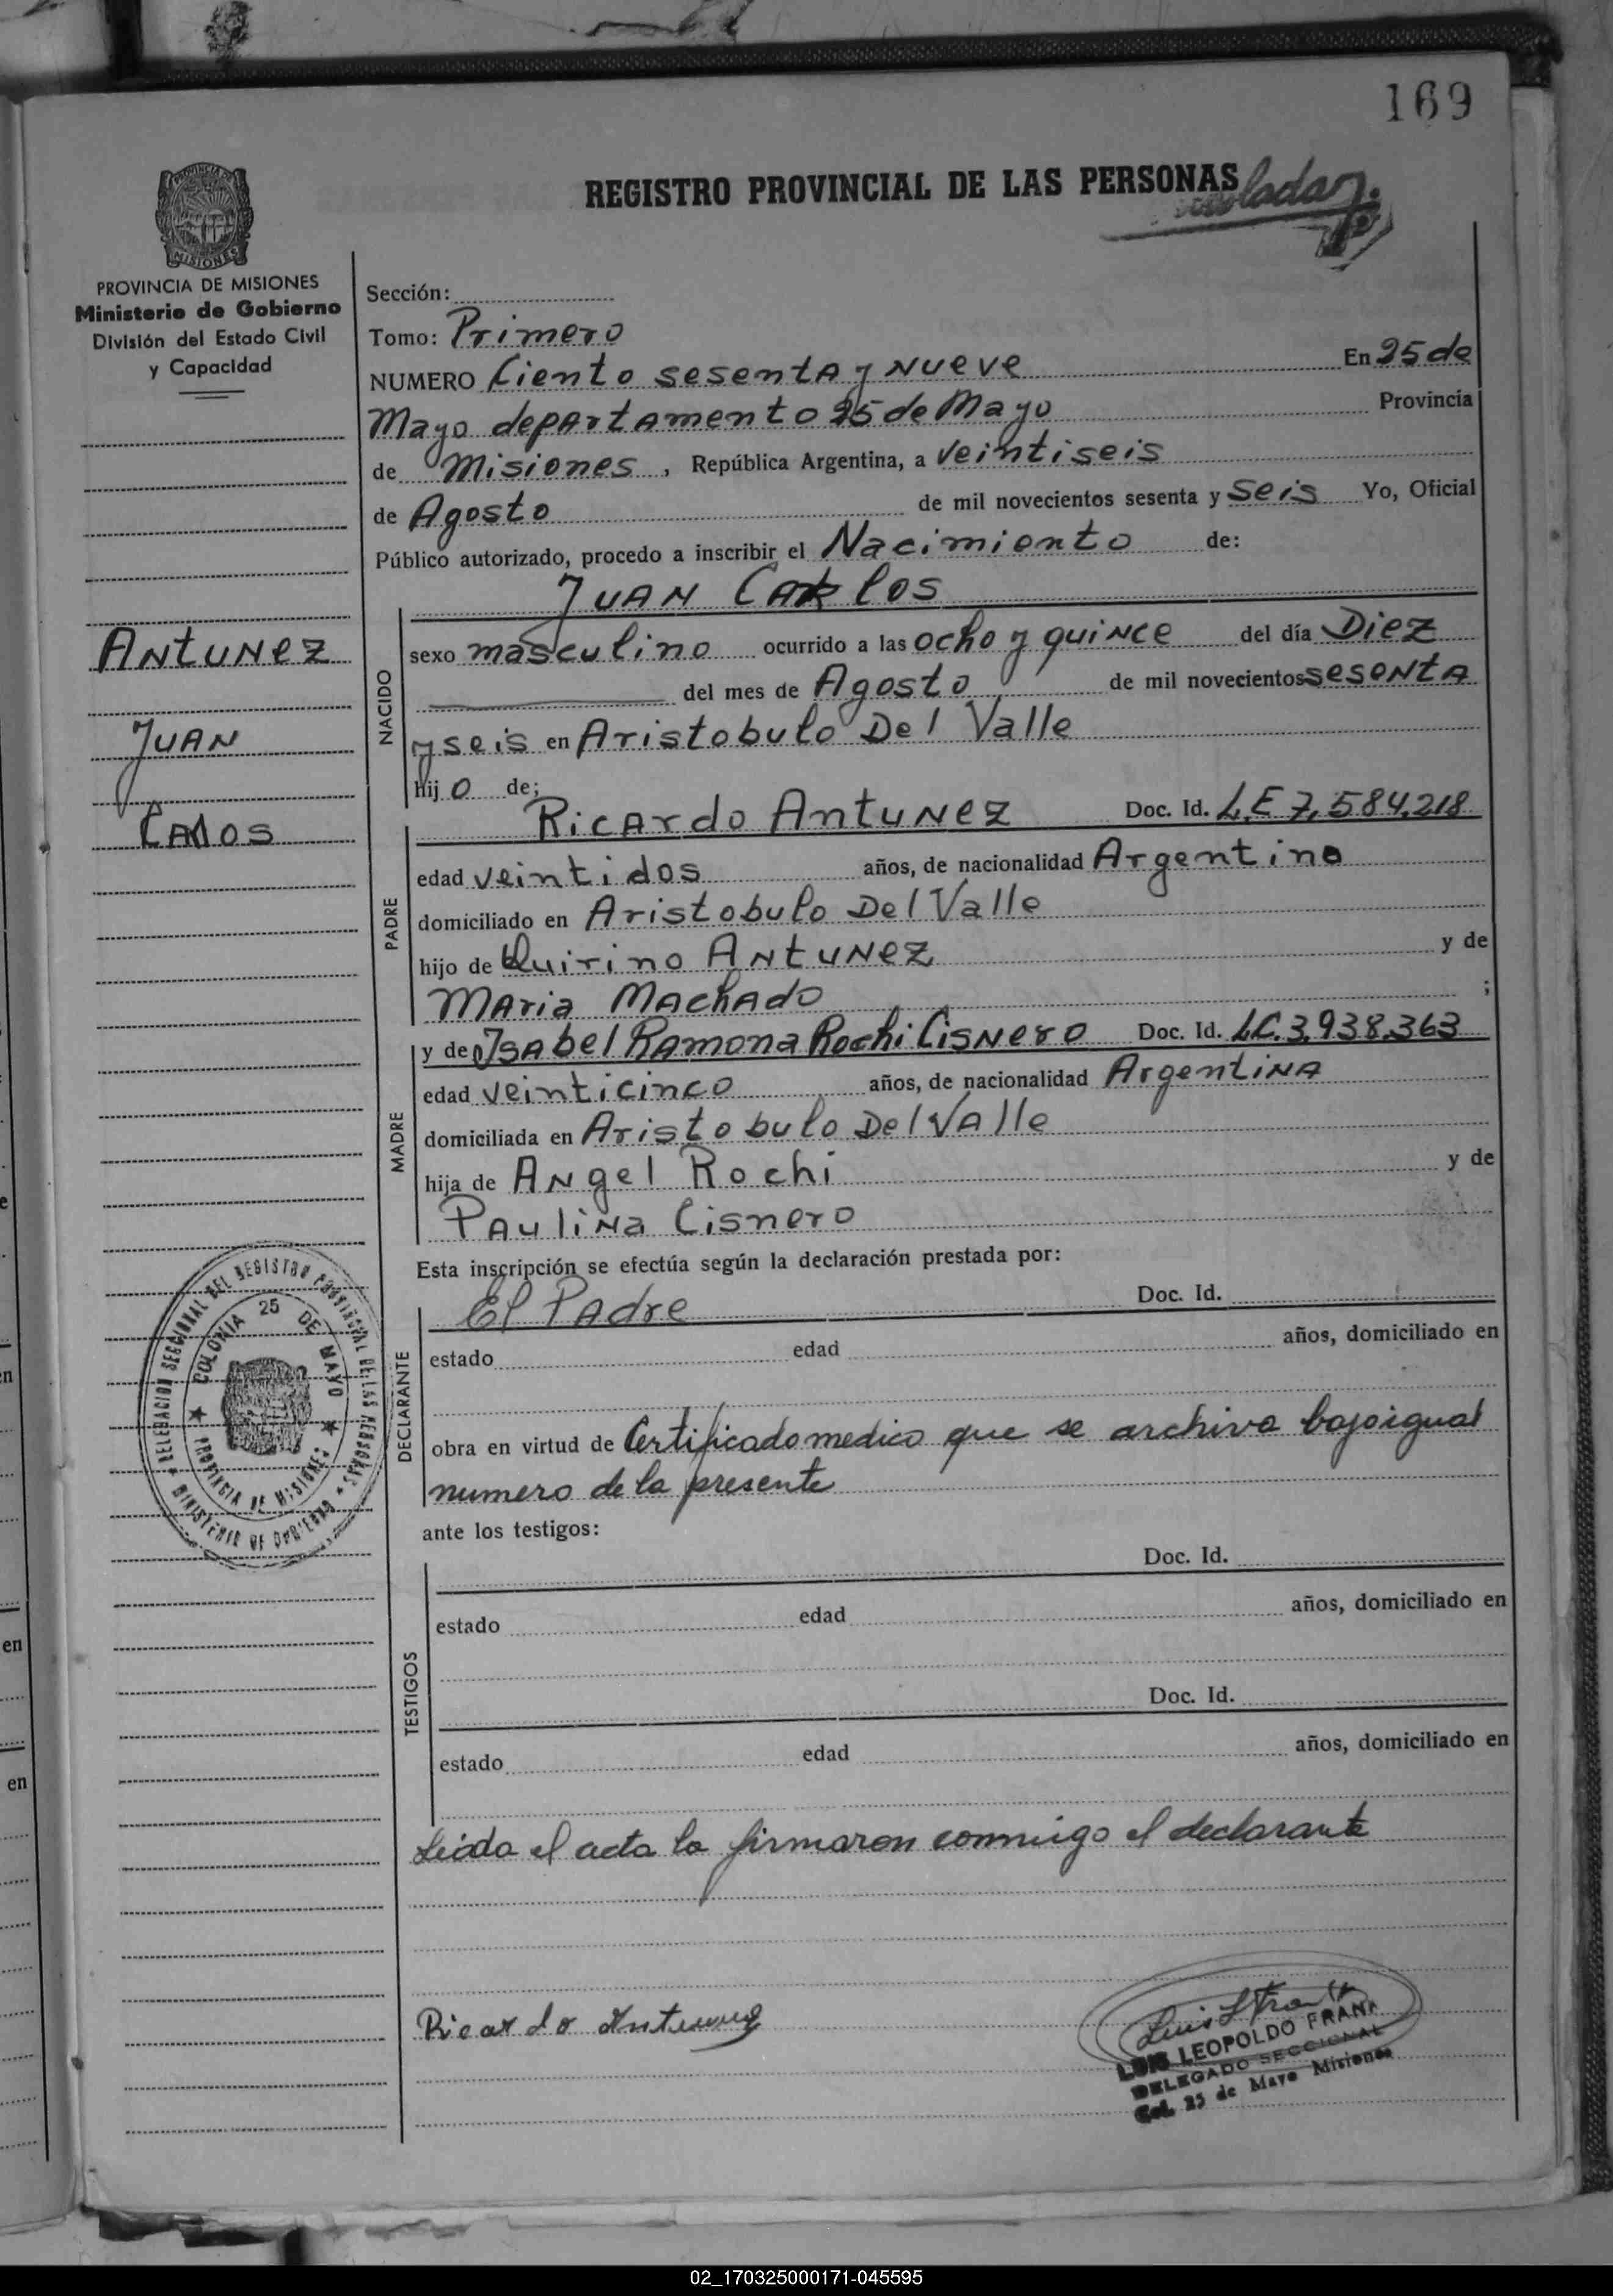 169
REGISTRO PROVINCIAL DE LAS PERSONAS
MISIONES
PROVINCIA DE MISIONES
Ministerio de Gobierno
División del Estado Civil
y Capacidad
Antunez
Juan
Carlos
Sección:
Tomo: Primero
NUMERO Ciento sesenta y nueve En 25 de
Mayo departamento 25 de Mayo Provincia
de Misiones, República Argentina, a veintiseis
de Agosto de mil novecientos sesenta y seis Yo, Oficial
Público autorizado, procedo a inscribir el Nacimiento de:
Juan Carlos
NACIDO
sexo masculino ocurrido a las ocho y quince del día Diez
del mes de Agosto de mil novecientos sesenta
y seis en Aristobulo Del Valle
hijo de;
PADRE
Ricardo Antunez Doc. Id. L.E 7.584.218
edad veintidos años, de nacionalidad Argentino
domiciliado en Aristobulo Del Valle
hijo de Quirino Antunez y de
Maria Machado ;
MADRE
y de Isabel Ramona Rochi Cisnero Doc. Id. L.C. 3.938.363
edad veinticinco años, de nacionalidad Argentina
domiciliada en Aristobulo Del Valle
hija de Angel Rochi y de
Paulina Cisnero
Esta inscripción se efectúa según la declaración prestada por:
DECLARANTE
El Padre Doc. Id.
estado edad años, domiciliado en
obra en virtud de Certificado medico que se archiva bajo igual
numero de la presente
ante los testigos:
TESTIGOS
Doc. Id.
estado edad años, domiciliado en
Doc. Id.
estado edad años, domiciliado en
Leida el acta la firmaron conmigo el declarante
DELEGACION SECCIONAL DEL REGISTRO PROVINCIAL DE LAS PERSONAS
MINISTERIO DE GOBIERNO
COLONIA 25 DE MAYO
PROVINCIA DE MISIONES
Ricardo Antunez
LUIS LEOPOLDO FRANK
DELEGADO SECCIONAL
Col. 25 de Mayo Misiones
en
en
02_170325000171-045595